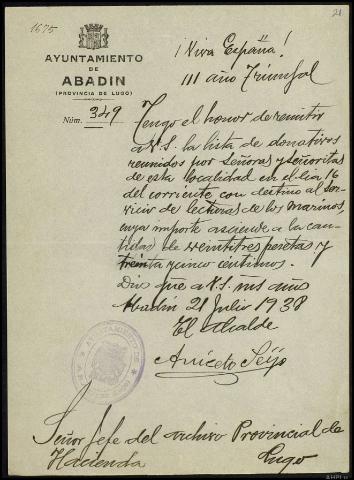 1675
21
AYUNTAMIENTO
DE
ABADIN
(PROVINCIA DE LUGO)
Núm. 349
¡Viva España!
III año Triunfal
Tengo el honor de remitir
a V.S. la lista de donativos
reunidos por Señoras y señoritas
de esta localidad en el dia 16
del corriente con destino al ser-
vicio de lecturas de los marinos,
cuyo importe asciende a la can-
tidad de veintitres pesetas y
treinta y cinco centimos.
Dios gue a V.S. ms años
Abadin 21 Julio 1938
El Alcalde
Aniceto Seijo
AYUNTAMIENTO DE
Señor Jefe del archivo Provincial de
Hacienda Lugo